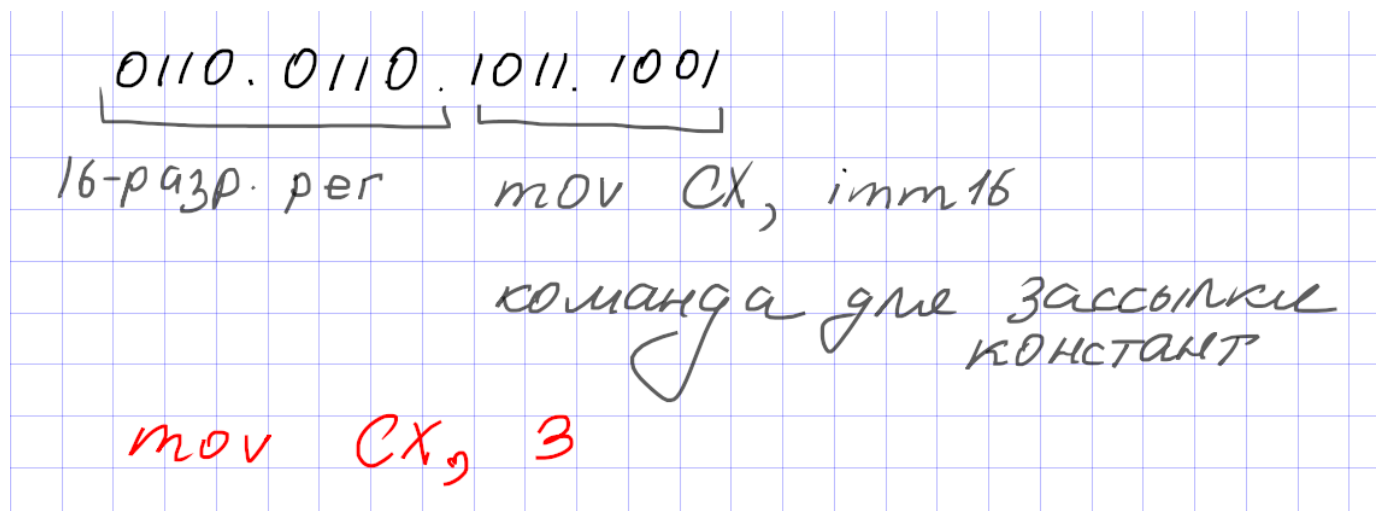 0110. 0110. 1011. 1001
16-разр. рег mov CX, imm16
команда для зассылки
констант
mov CX, 3